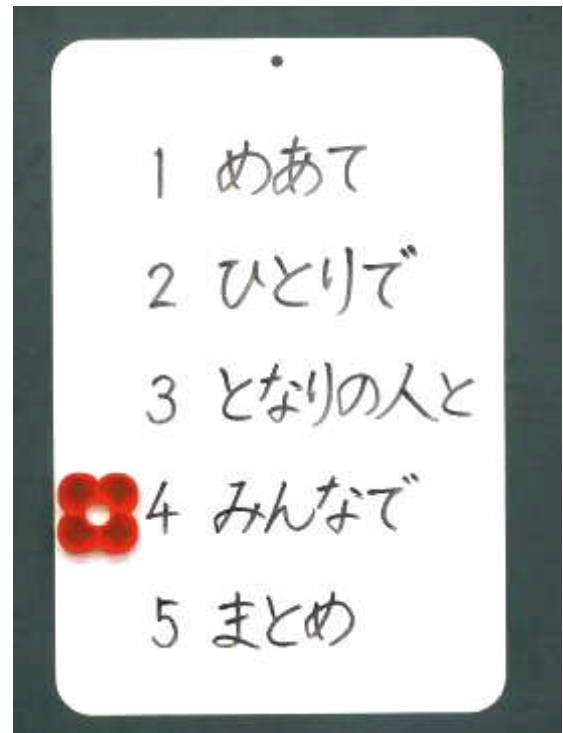 1 めあて
2 ひとりで
3 となりの人と
4 みんなで
5 まとめ